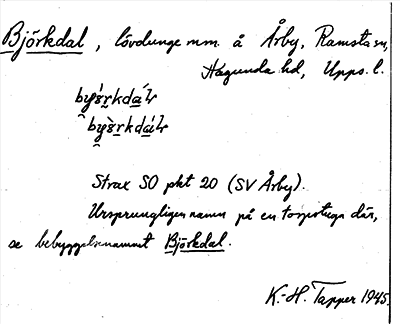 Björkdal, lövdunge m.m. å Årby, Ramsta sn,
Hagunda hd, Upps. l.
Strax SO pkt 20 (SV Årby).
Ursprungligen namn på en torpstuga där,
se bebyggelsenamnet Björkdal.
K.-H. Tapper 1945.